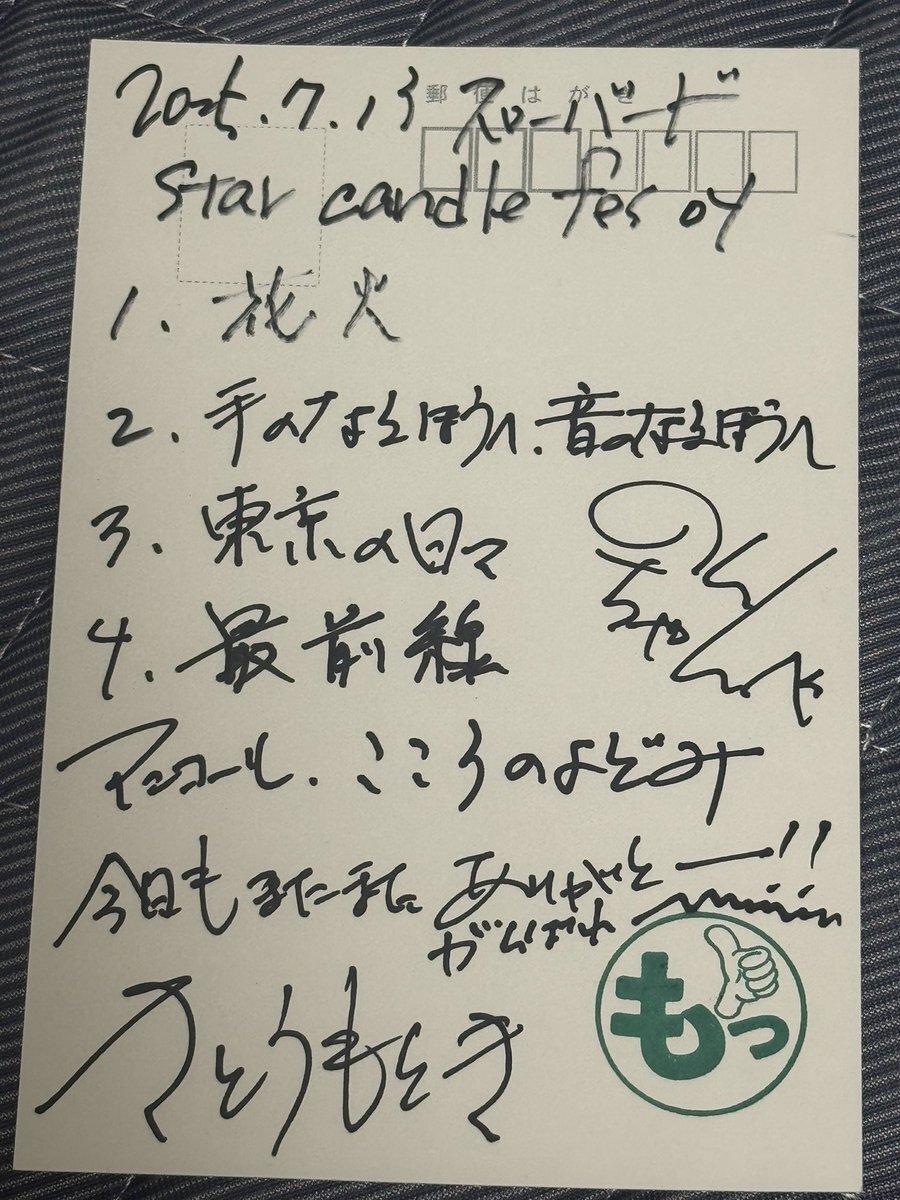 郵便はがき
2025.7.13 スローバード
Star candle fes 04
1. 花火
2. 手のなるほうへ、音のなるほうへ
3. 東京の日々
4. 最前線
のん
ちゃん
アンコール. こころのよどみ
今日もまたまた ありがとー!!
がんばれ
さとうもとき
もっ